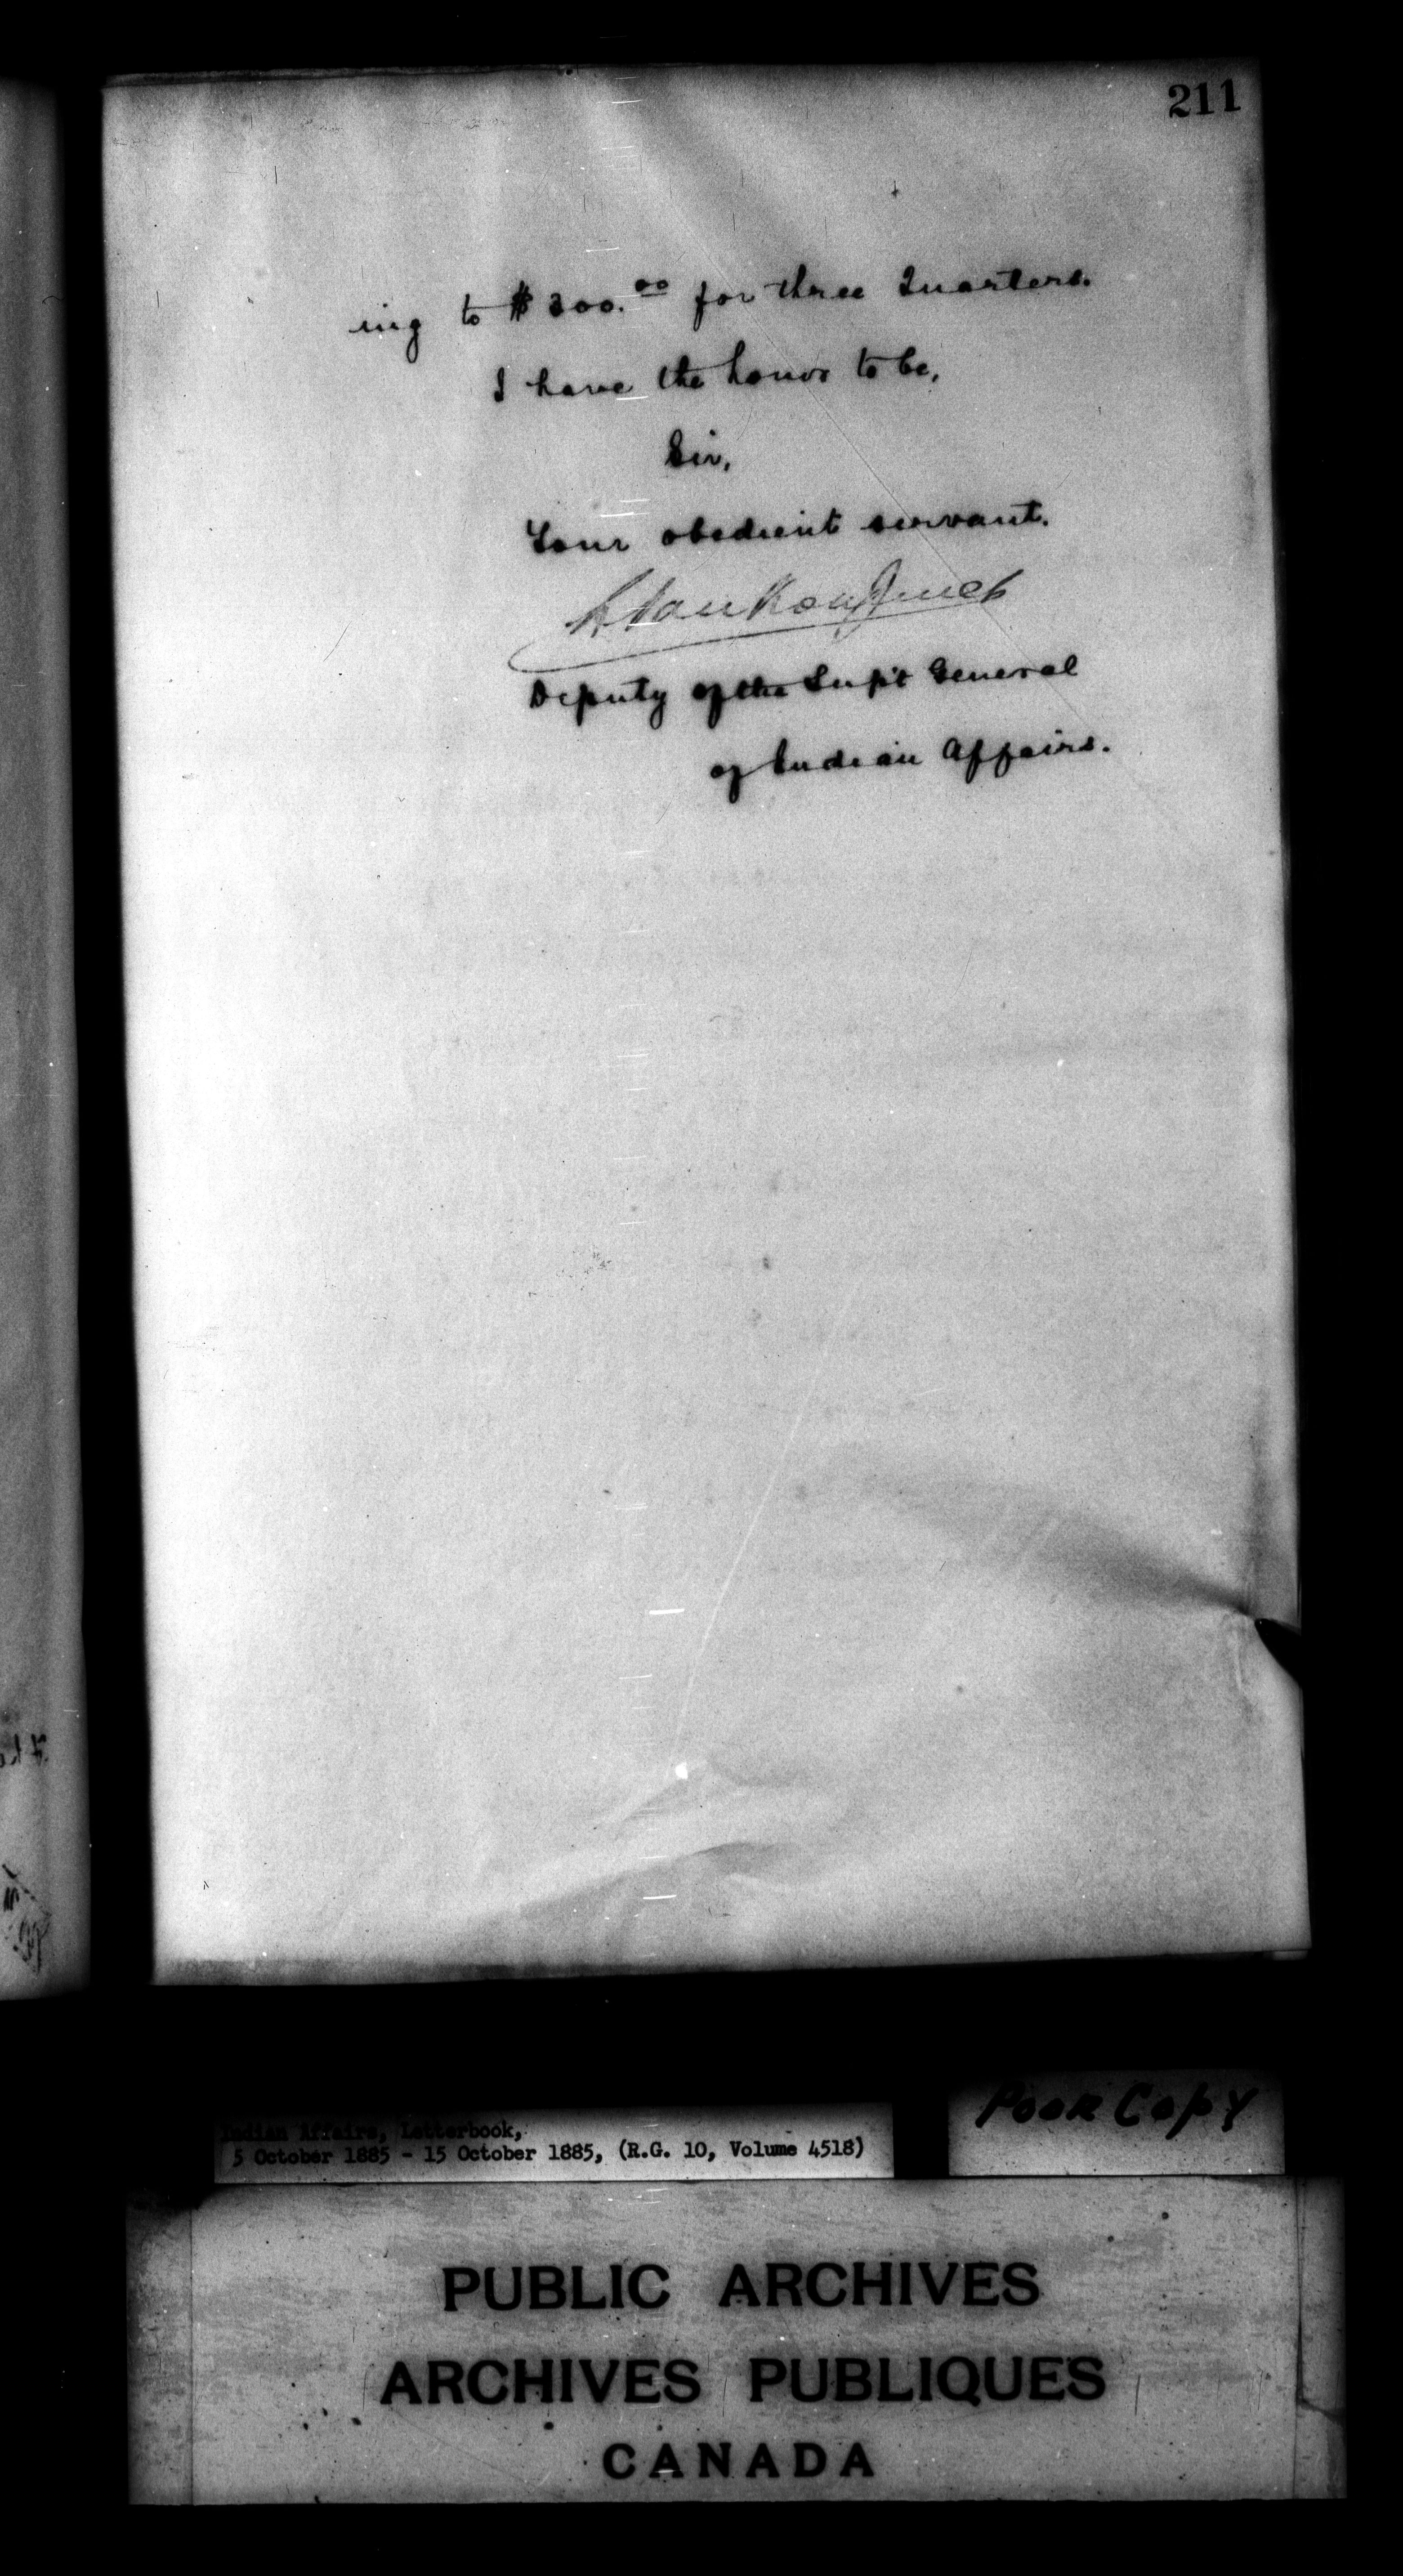 211
ing to $300.00 for three Quarters.
I have the honor to be,
Sir,
Your obedient servant.
L. VanKoughnet
Deputy of the Sup't General
of Indian Affairs.
Poor Copy
Indian Affairs, Letterbook,
5 October 1885 - 15 October 1885, (R.G. 10, Volume 4518)
PUBLIC ARCHIVES
ARCHIVES PUBLIQUES
CANADA